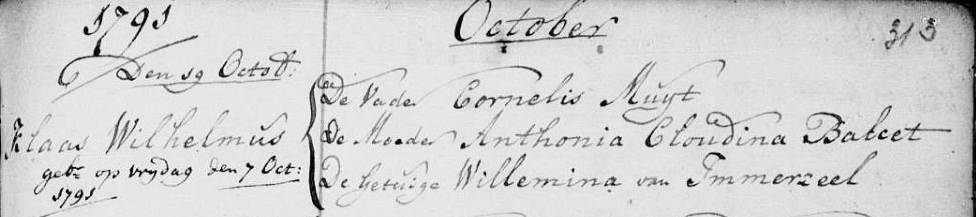 1791 October 313
Den 19 Octob:
De Vader Cornelis Muyt
Klaas Wilhelmus De Moeder Anthonia Cloudina Balcet
geb: op vrydag den 7 Oct: De Getuige Willemina van Immerzeel
1791